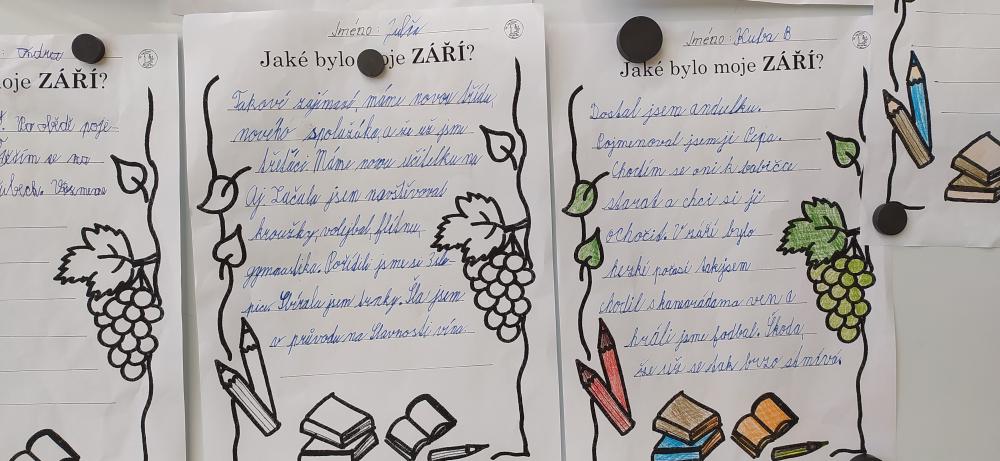 Ondra
moje ZÁŘÍ?
Po obědě poje-
těším se na
Jméno: Julie
Jaké bylo moje ZÁŘÍ?
Takové zajímavé, máme novou třídu,
nového spolužáka, a že už jsme
třeťáci Máme novou učitelku na
Aj Začala jsem navštěvovat
kroužky, volejbal, flétnu,
gymnastika. Pořídili jsme si
Sbírala jsem trnky. Šla jsem
v průvodu na Slavnosti vína.
Jméno: Kuba B
Jaké bylo moje ZÁŘÍ?
Dostal jsem andulku.
Pojmenoval jsem ji Pepa.
Chodím se oni k babičce
starat a chci si ji
ochočit. V září bylo
hezké počasí takjsem
chodil skamarádama ven a
hráli jsme fodbal. Škoda,
že už se tak brzo stmívá.